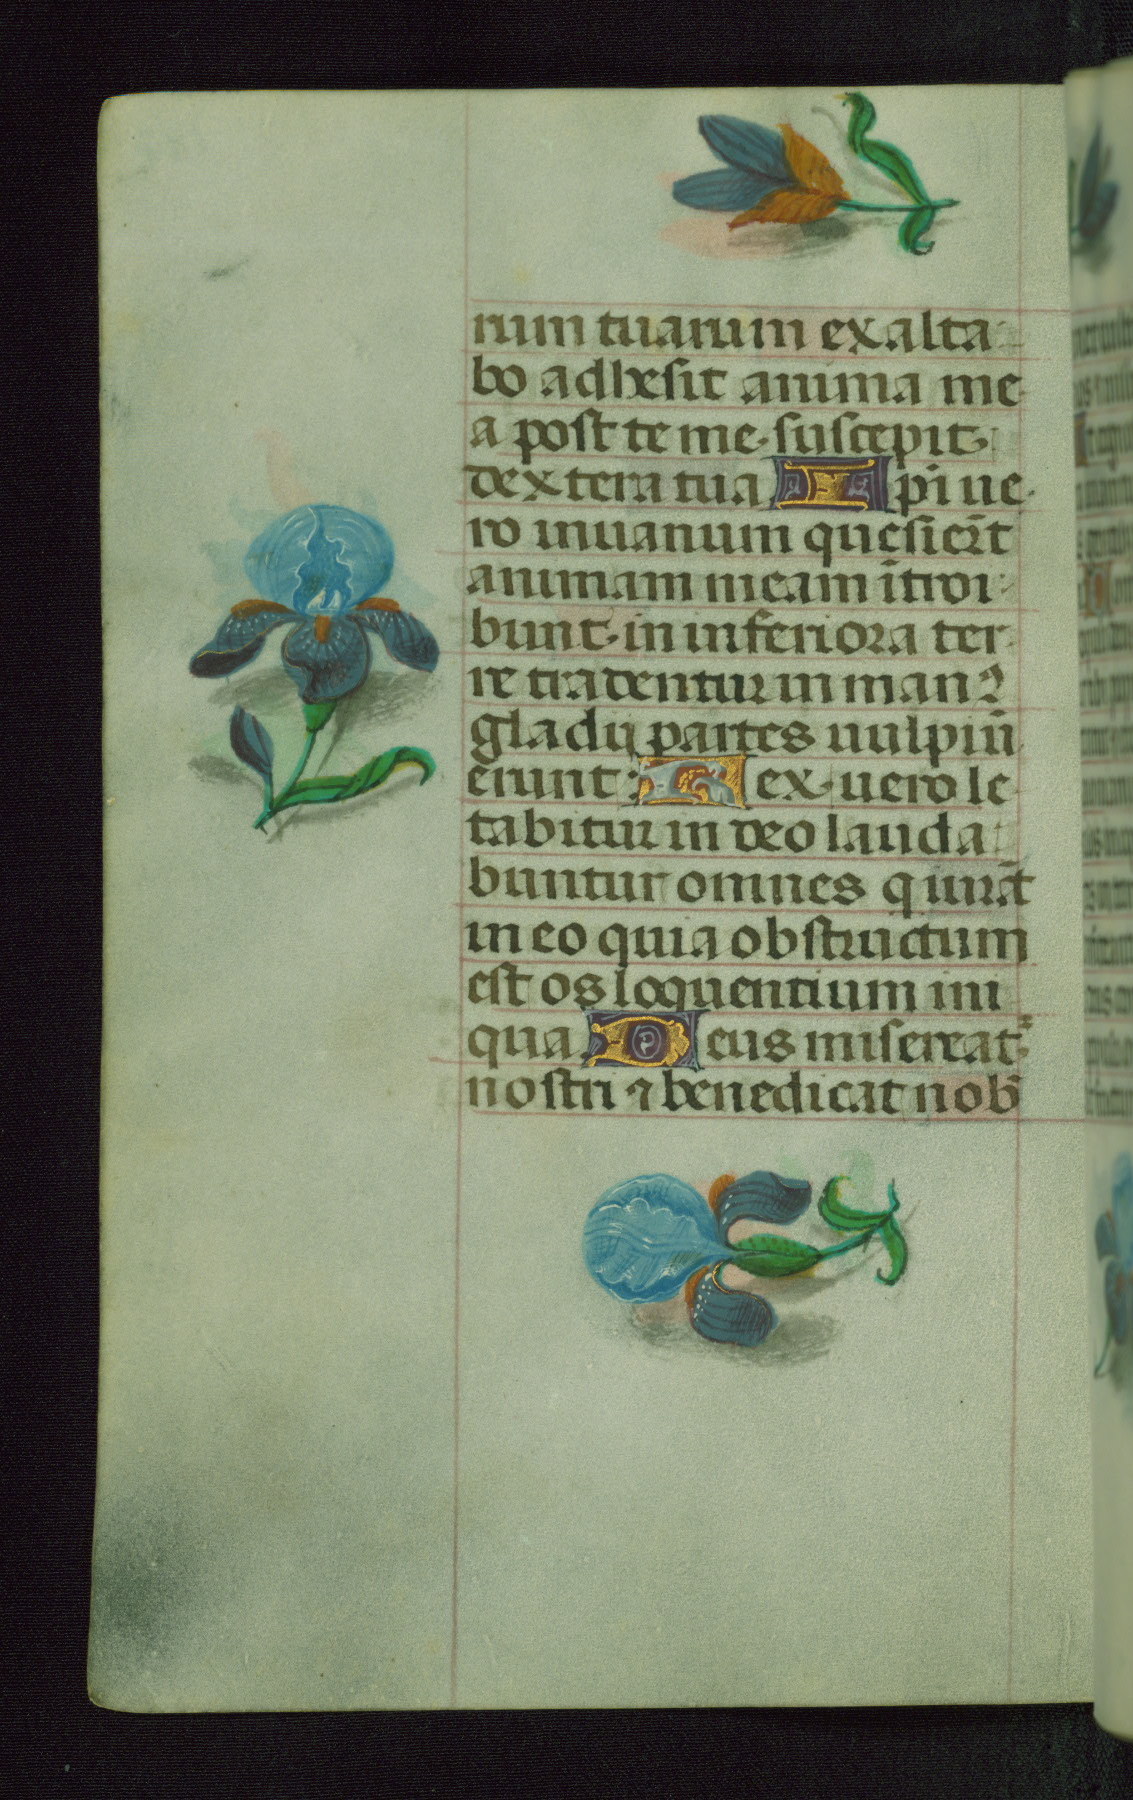 rum tuarum exalta
bo adhesit anima me
a post te me suscepit
dextera tua Ipi ue
ro inuanum quesier̄t
animam meam ītroi
bunt in inferiora ter
re tradentur in manꝰ
gladij partes uulpiū
erunt: Rex uero le
tabitur in deo lauda
buntur omnes qui iurāt
in eo quia obstructum
est os loquentium ini
qua Deus misereat᷑
nostri ⁊ benedicat nob̄